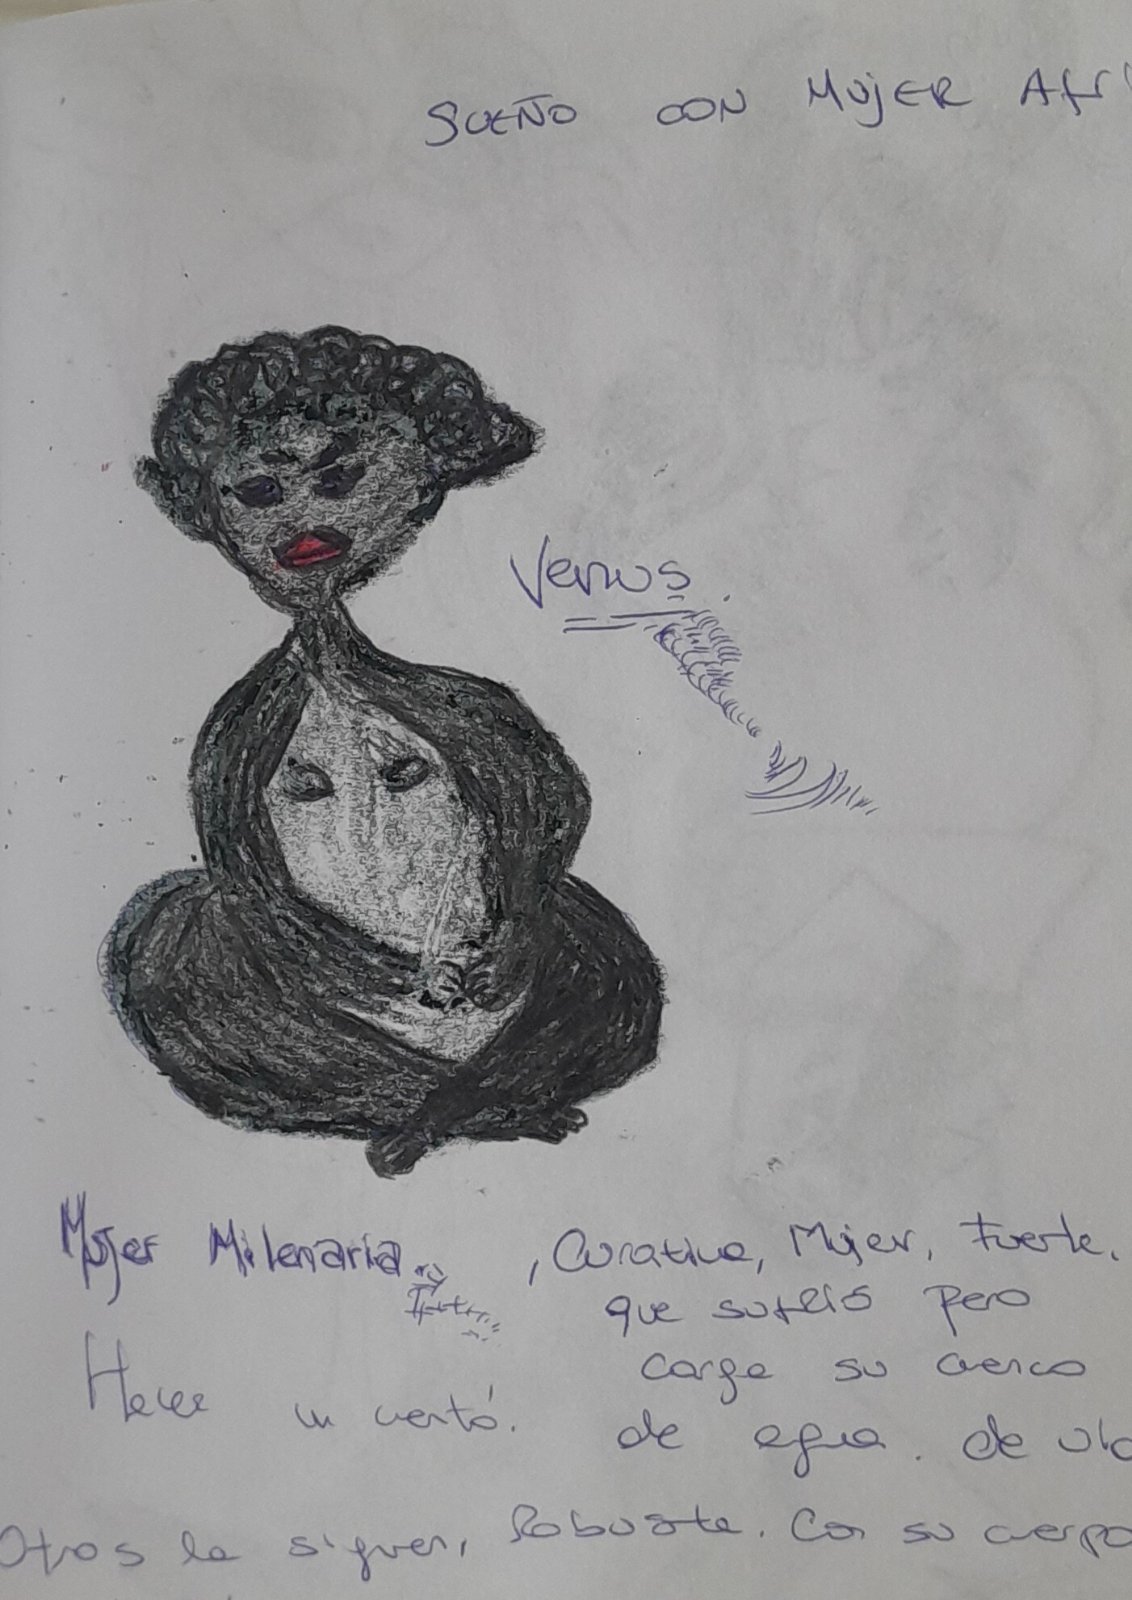 SUEÑO CON MUJER Afr
Venus.
Mujer Milenaria, Curativa, Mujer, Fuerte.
que sufrió pero
carga su cuenco
Hacer un cuento.
de agua. de
Otros la siguen, Robusta. Con su cuerpo